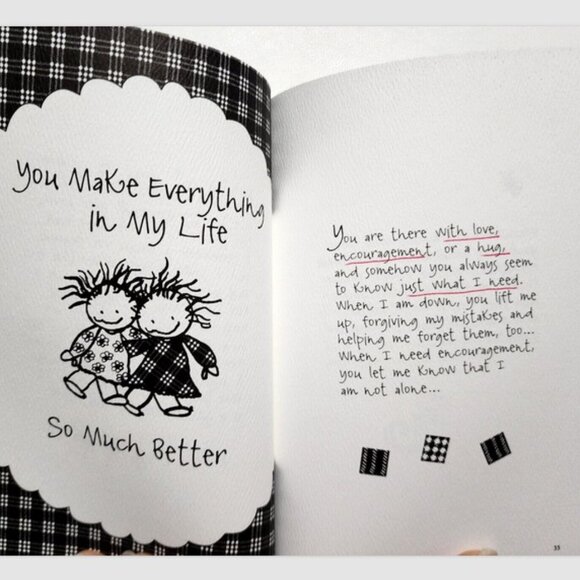 You Make Everything
in My Life
So Much Better
You are there with love,
encouragement, or a hug,
and somehow you always seem
to know just what I need.
When I am down, you lift me
up, forgiving my mistakes and
helping me forget them, too...
When I need encouragement,
you let me know that I
am not alone...
33